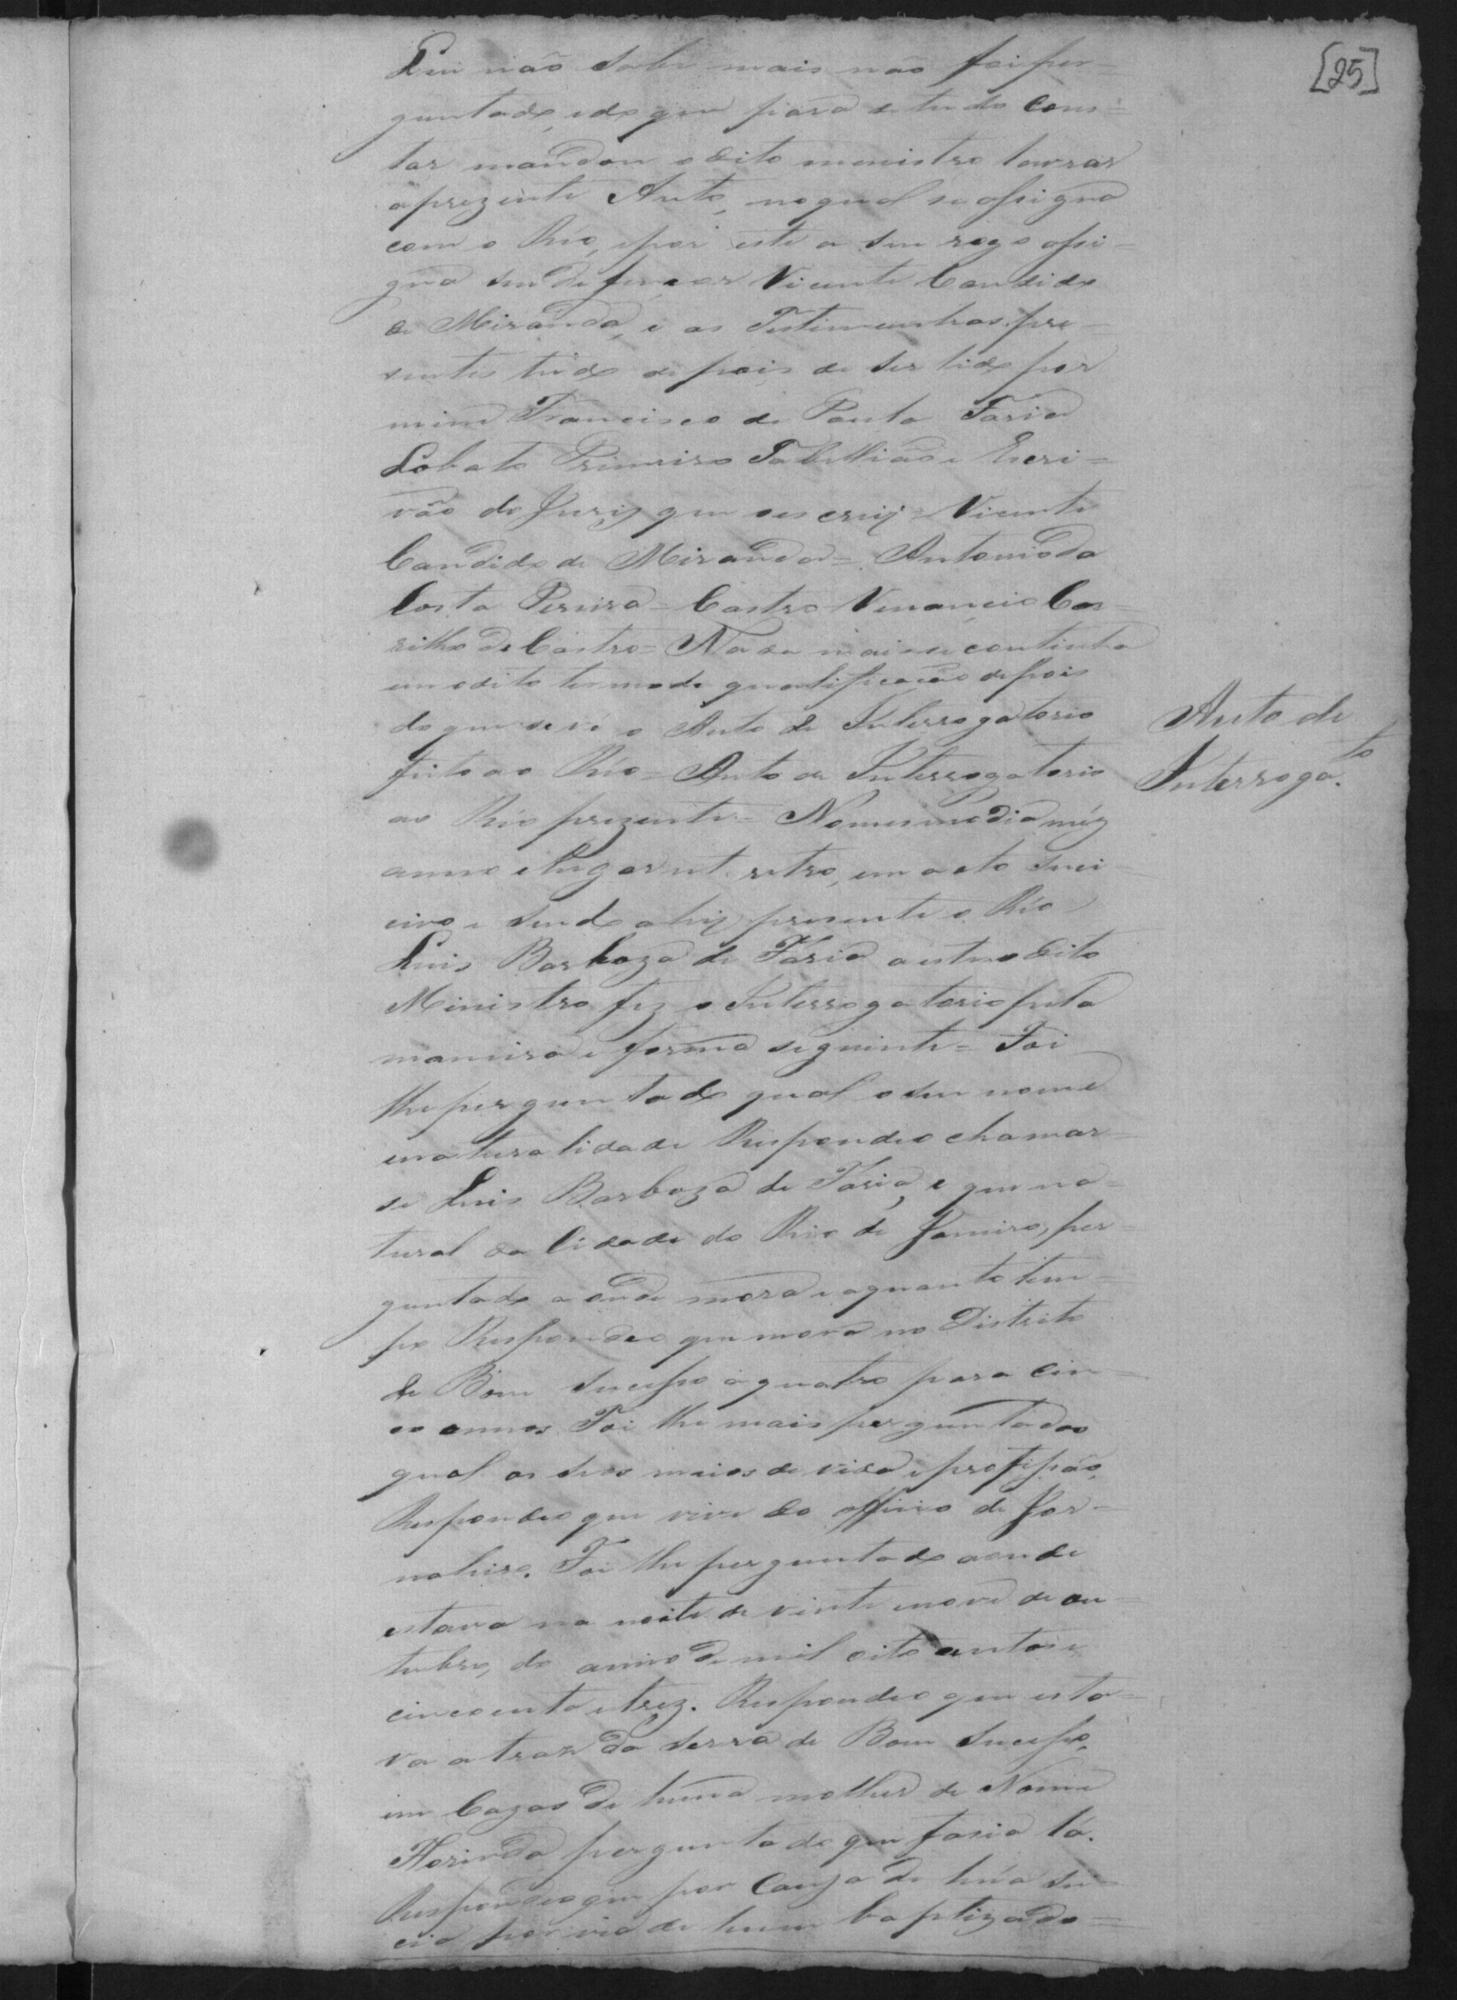 [25]
Lui não sabe mais não foi per=
guntado, e do que para a tudo Cons=
tar mandou o dito menistro lavrar
o prezente Auto, no qual se assigna
com o Réo, e por este a seu rogo assi=
gna seu defençor Vicente Candido
de Miranda, e as Testimunhas pre=
zentes tudo depois de ser lido por
mim Francisco de Paula Faria
Lobato Primeiro Tabellião e Escri=
vão do Jury que escrevy = Vicente
Candido de Miranda = Antonio da
Costa Pereira = Castro Venancio Cas=
rilho de Castro = Nada mais se continha
em o dito termo de qualificação depois
do que se vê o Auto de Interrogatorio
feito ao Réo = Auto de Interrogatorio
Auto de
Interroga.to
ao Réo prezente = No mesmo dia mêz
anno e lugar ut retro, em acto suci=
civo e sendo ahy presente o Réo
Luis Barboza de Faria a este o dito
Ministro fez o Interrogatorio pela
maneira e forma seguinte = Foi
lhe perguntado qual o seu nome
e naturalidade Respondeo chamar=
se Luis Barboza de Faria, e que na=
tural da Cidade do Rio de Janeiro, per=
guntado aonde mora e a quanto tem=
po Respondeo que mora no Distrito
de Bom Sucesso a quatro para cin=
co annos Foi lhe mais perguntado
qual os seus meios de vida e profissão,
Respondeo que vive do officio de Jor=
naleiro. Foi lhe perguntado aonde
estava na noite de vinte e nove de ou=
tubro, do anno de mil oito centos e
cincoenta e trez. Respondeo que esta=
va atraz da Serra de Bom Sucesso,
em Cazas de huma molher de Nome
Florinda perguntado que fasia lá.
Respondeo que por Cauza de húa su=
cia por via de hum baptizado=